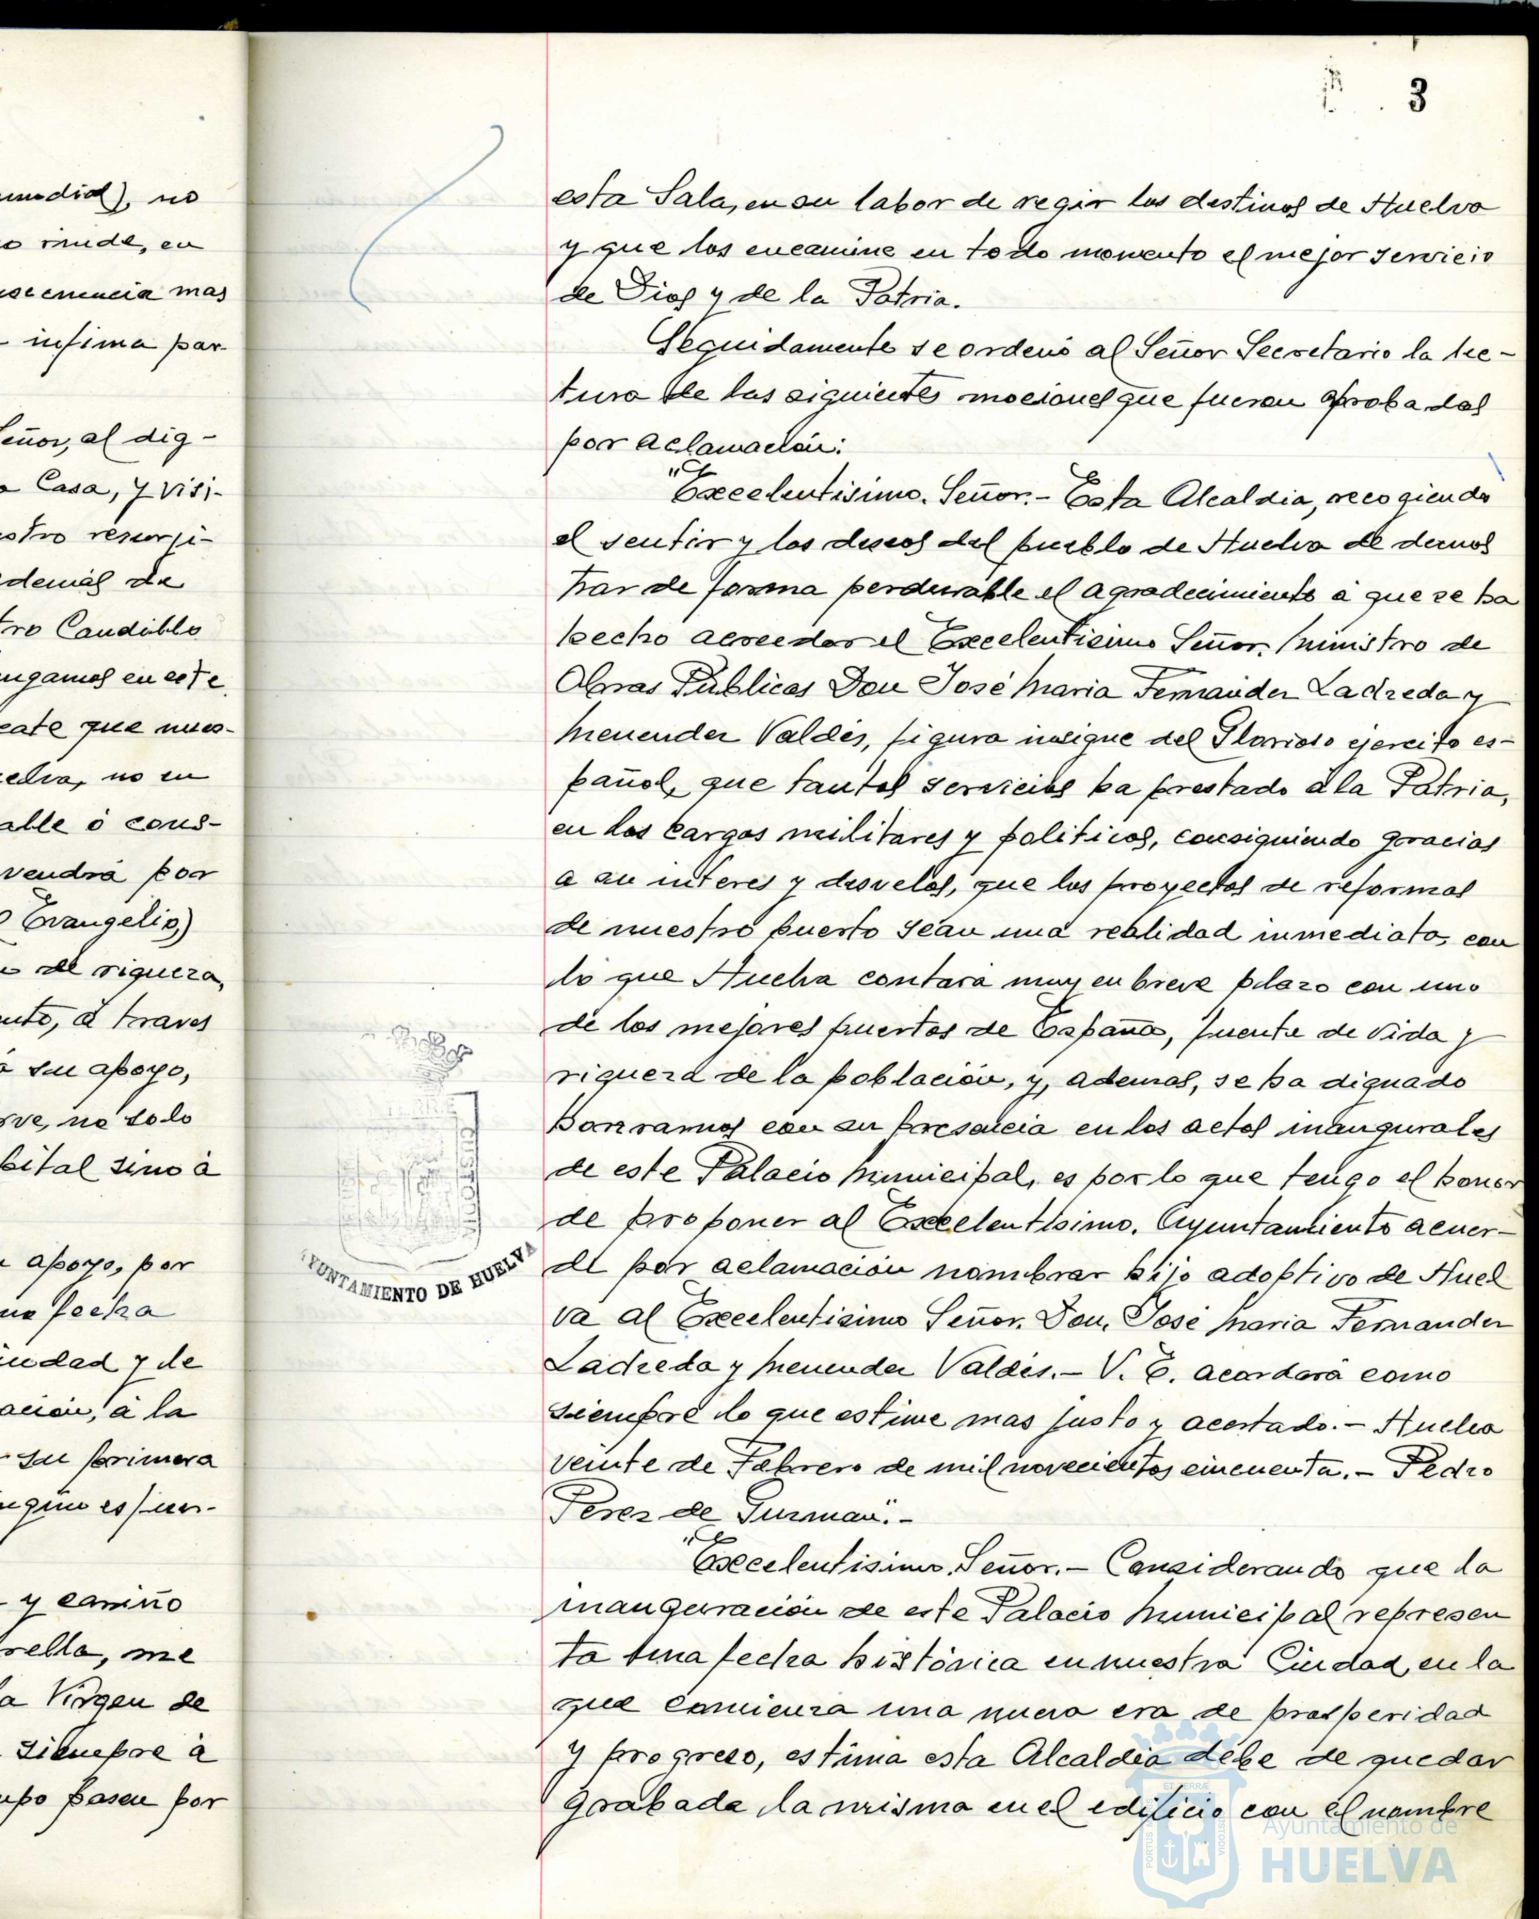 3
esta Sala, en su labor de regir los destinos de Huelva
y que los encamine en todo momento el mejor servicio
de Dios y de la Patria.
Seguidamente se ordenó al Señor Secretario la lec-
tura de las siguientes mociones que fueron aprobadas
por aclamación:
"Excelentisimo. Señor.- Esta Alcaldia, recogiendo
el sentir y los deseos del pueblo de Huelva de demos
trar de forma perdurable el agradecimiento á que se ha
hecho acreedor el Excelentisimo Señor. Ministro de
Obras Públicas Don José Maria Fernandez Ladreda y
Menendez Valdés, figura insigne del Glorioso ejercito es-
pañol, que tantos servicios ha prestado á la Patria,
en los cargos militares y politicos, consiguiendo gracias
a su interés y desvelos, que los proyectos de reformas
de nuestro puerto sean una realidad inmediata, con
lo que Huelva contará muy en breve plazo con uno
de los mejores puertos de España, fuente de vida y
riqueza de la población, y, además, se ha dignado
honrarnos con su presencia en los actos inaugurales
de este Palacio Municipal, es por lo que tengo el honor
de proponer al Excelentísimo. Ayuntamiento acuer-
de por aclamación nombrar hijo adoptivo de Huel
va al Excelentisimo Señor. Don. José Maria Fernandez
Ladreda y Menendez Valdés.- V. E. acordará como
siempre lo que estime mas justo y acertado.- Huelva
veinte de Febrero de mil novecientos cincuenta.- Pedro
Perez de Guzmán".-
"Excelentisimo. Señor.- Considerando que la
inauguración de este Palacio Municipal represen
ta una fecha histórica en nuestra Ciudad, en la
que comienza una nueva era de prosperidad
y progreso, estima esta Alcaldia debe de quedar
grabada la misma en el edificio con el nombre
AYUNTAMIENTO DE HUELVA
no
en
mas
infima par-
eñor, al dig-
Casa, y visi-
stro resurji-
demás de
tro Caudillo
ngamos en este
que nues-
elva, no en
able ó cons-
vendrá por
Evangelio)
de riqueza,
á traves
su apoyo,
no solo
pital sino á
apoyo, por
fecha
udad y de
á la
su primera
y cariño
rella, me
la Virgen de
siempre á
pasen por
Ayuntamiento de
HUELVA